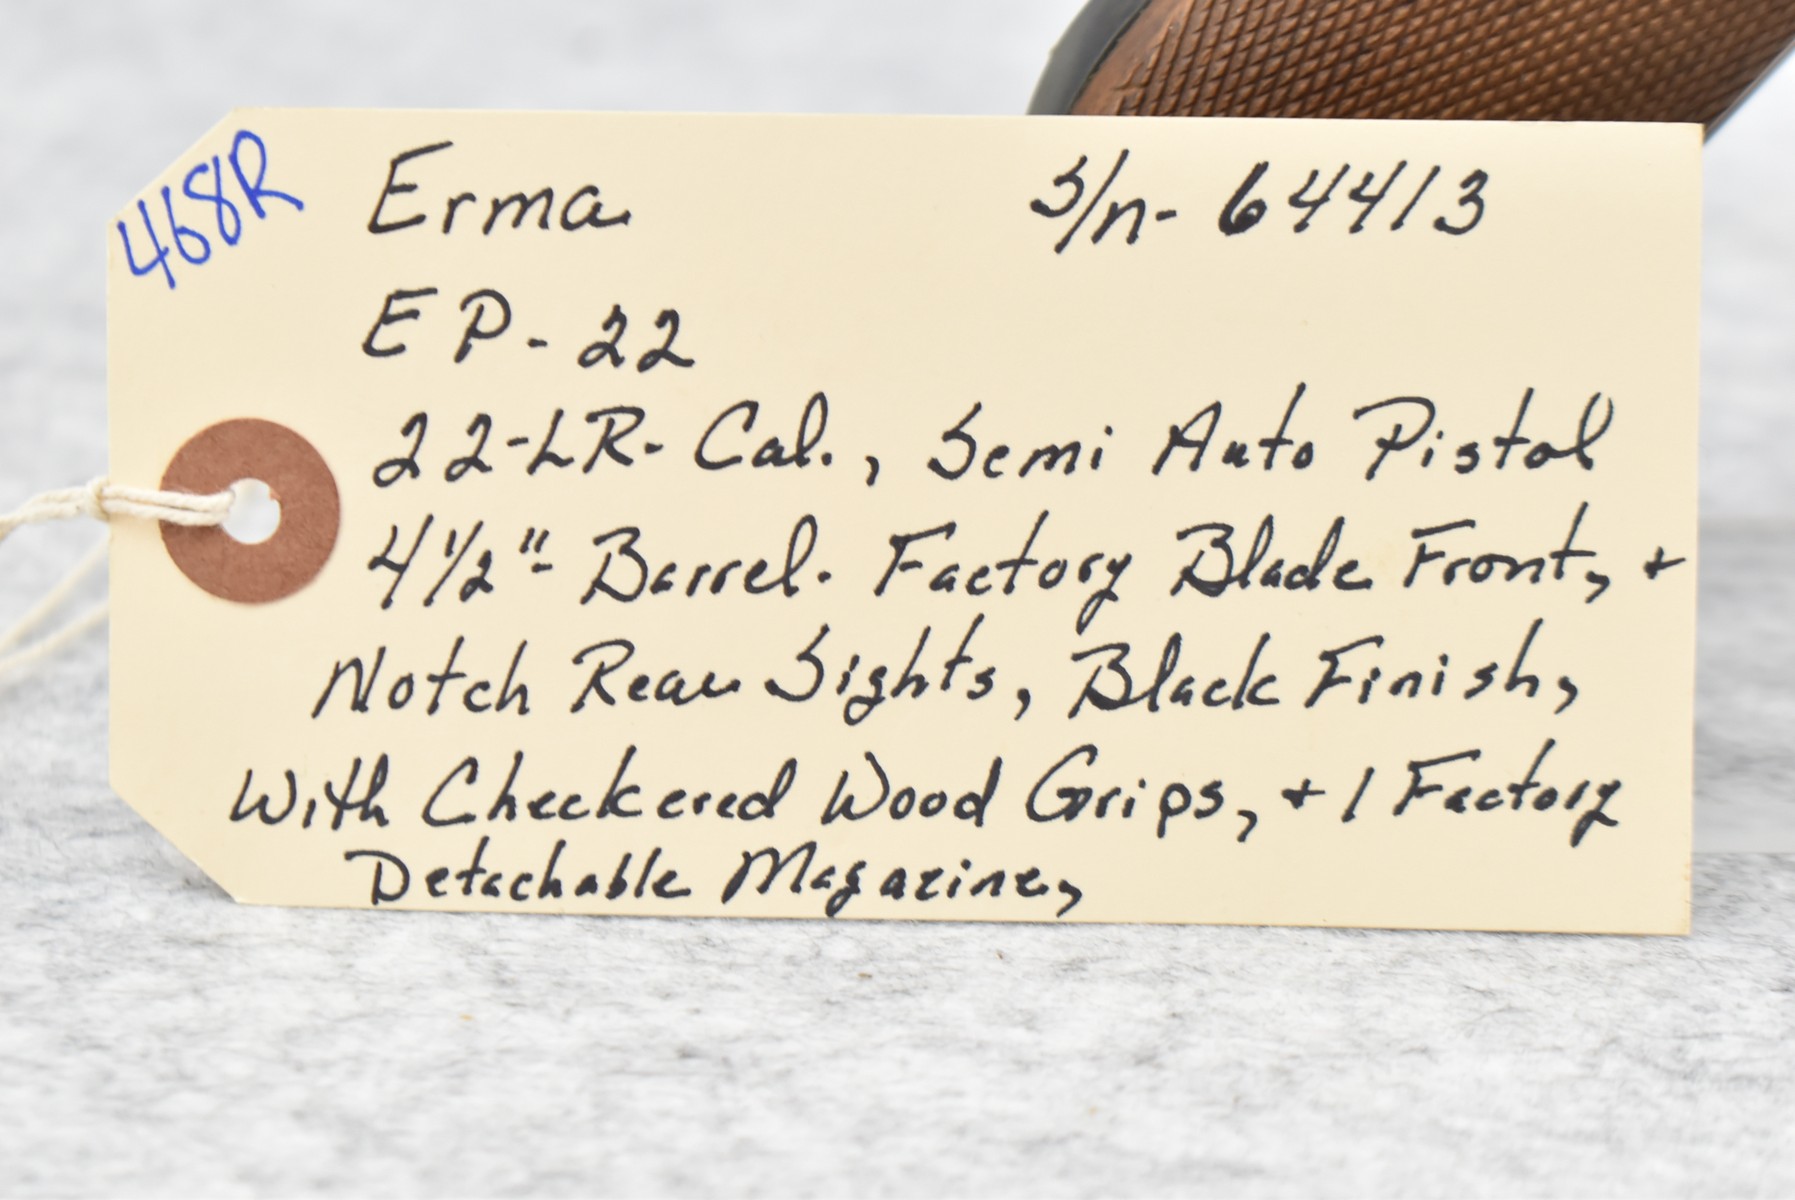 468R
Erma S/n- 64413
EP-22
22-LR- Cal., Semi Auto Pistol
4 1/2"- Barrel. Factory Blade Front, +
Notch Rear Sights, Black Finish,
With Checkered Wood Grips, + 1 Factory
Detachable Magazine,